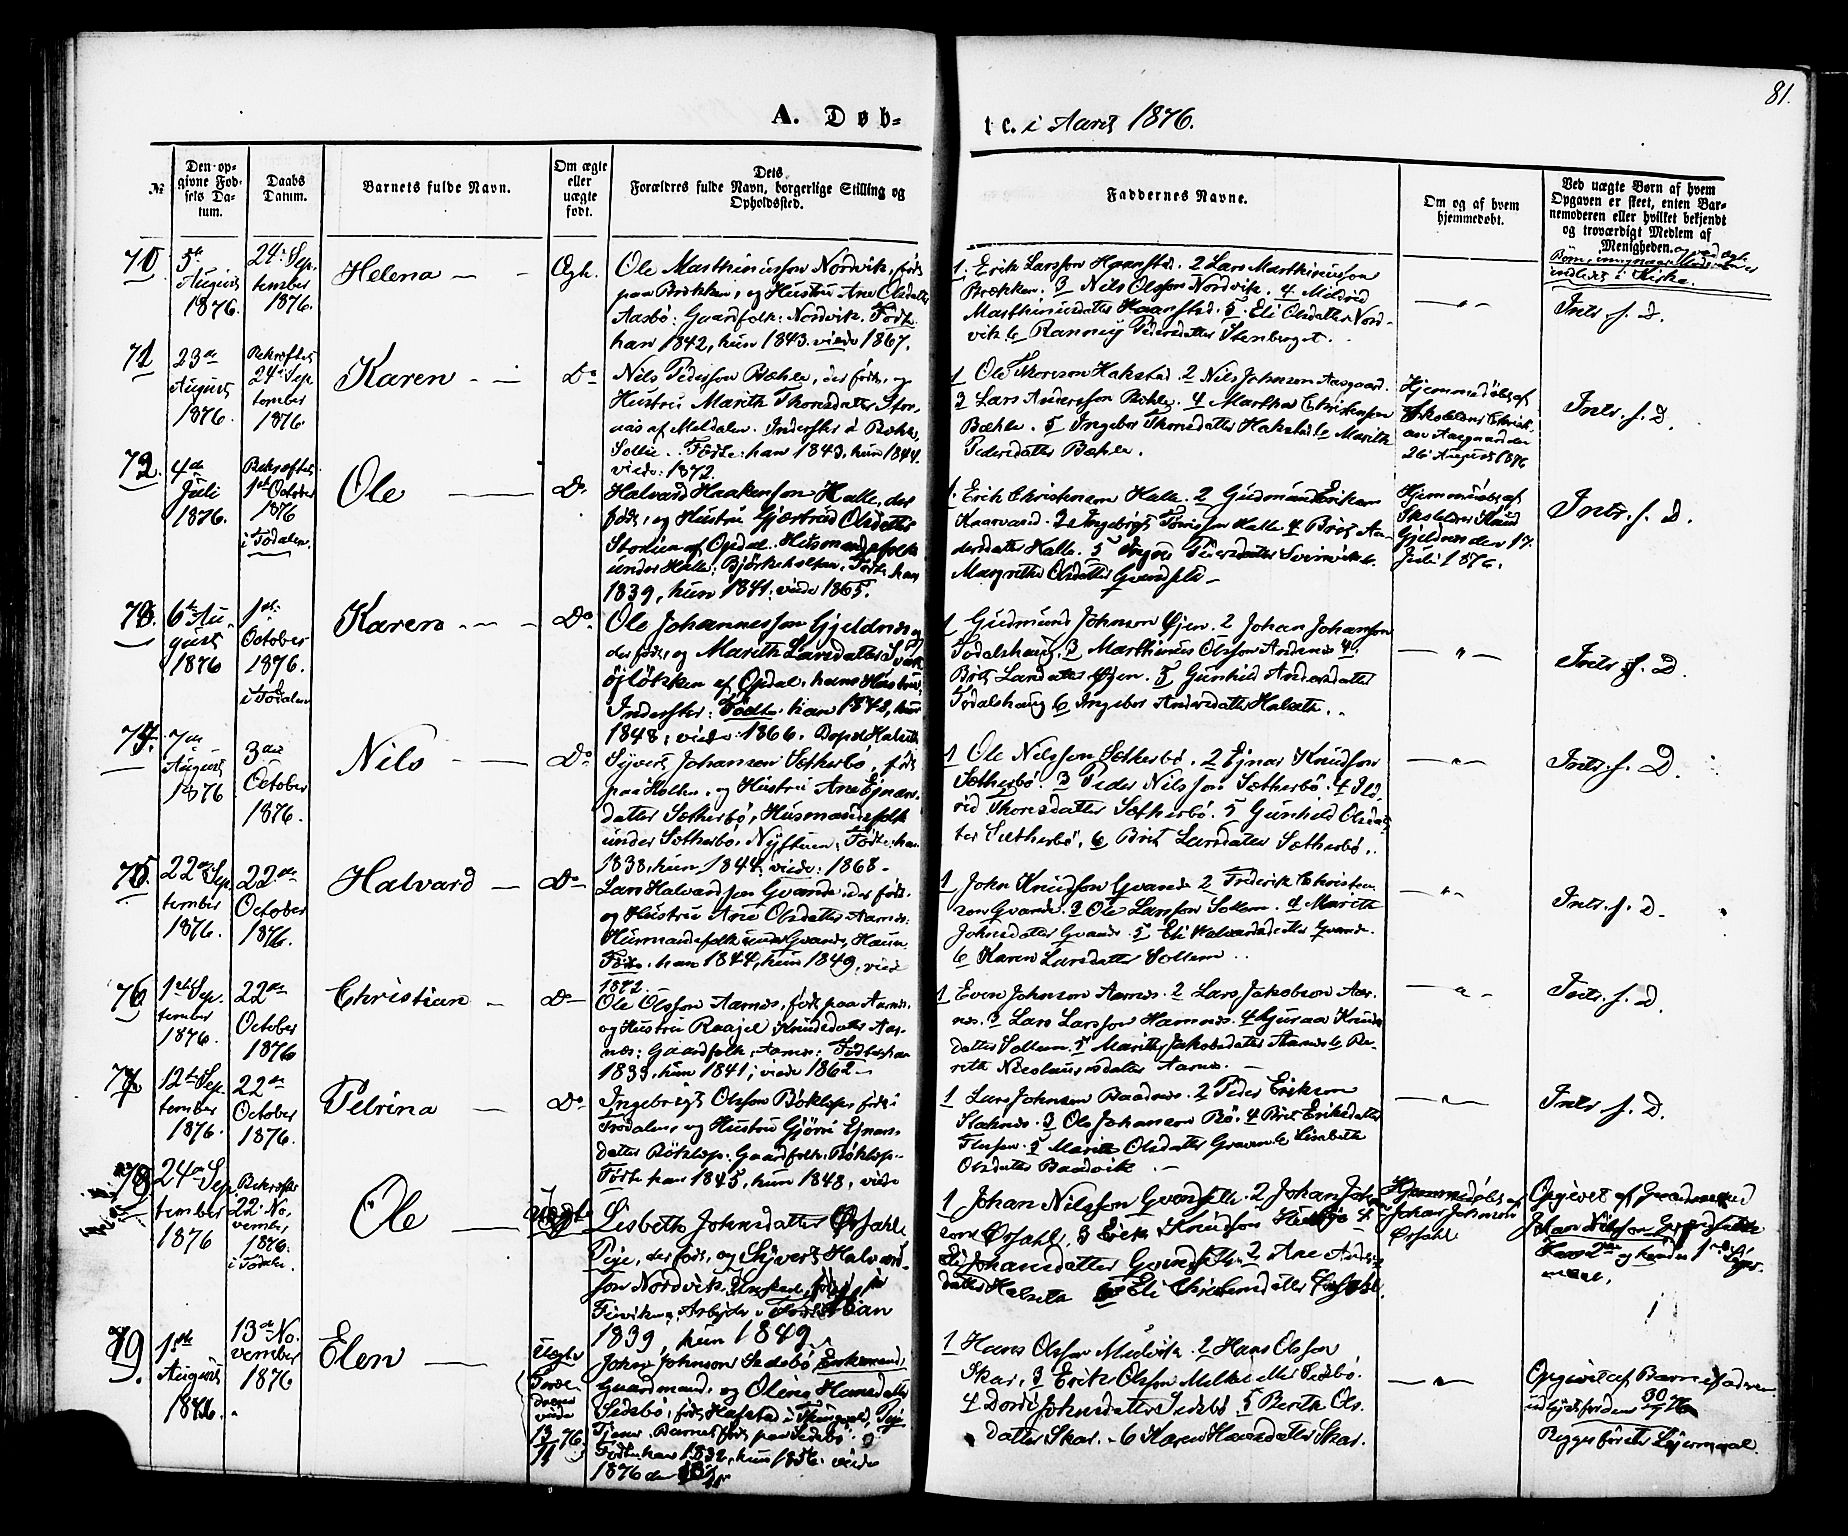 81.
A. Døb-
te. i Aaret 1876.
№
Den op-
givne Fød-
sels Da-
tum.
Daabs
Datum.
Barnets fulde Navn.
Om ægte
eller
uægte
født.
Dets
Forældres fulde Navn, borgerlige Stilling og
Opholdssted.
Faddernes Navne.
Om og af hvem
hjemmedøbt.
Ved uægte Børn af hvem
Opgaven er skeet, enten Bar-
nemoderen eller hvilket bekjendt
og troværdigt Medlem af
Menigheden.
70
5te
August
1876.
24de Sep-
tember
1876.
Helena
Ægte.
Ole Marthinusson Nordvik, født
paa Brækken, og Hustru Ane Olsdatter
Aasbø. Gaardfolk: Nordvik. Født:
han 1842, hun 1843. viede 1867.
1. Erik Larsson Haanstad. 2 Lars Marthinusson
Brækken. 3 Nils Olsson Nordvik. 4 Mildrid
Marthinusdatter Haanstad. 5 Eli Olsdatter Nord-
vik 6 Rannug Pedersdatter Stenberget.
Intr. f. D.
71
23de
August
1876.
Bekræftet
24de Sep
tember
1876.
Karen
Do
Nils Pederson Bæhle, der født, og
Hustru Marith Thoresdatter Stor-
aas af Meldalen. Inderster i Bæhle,
Født: han 1843, hun 1844.
viede: 1872.
1 Ole Thoreson Halstad. 2 Nils Johnson Aasgaard.
3 Lars Andersson Bæhle. 4 Martha Christensen
Bæhle. 5 Ingebor Thoresdatter Halstad 6 Marith
Pedersdatter Bæhle.
Hjemmedøbt af
Skoleholder Christi-
an Aasgaard den
26 August 1876
Intr. f. D.
72
4de
Juli
1876.
Bekræftet
1ste October
1876
i Todalen.
Ole
Do
Halvard Haakenson Halle, der
født, og Hustru Gjertrud Olsdatter
Storlien af Opdal. Husmandsfolk
under Halle; Bjørkeholten. Født: han
1839, hun 1841. viede 1865.
1. Erik Christenson Halle. 2 Gudmund Erikson
Kaarvand. 3 Ingebrigt Halle. 4 Brit An-
dersdatter Halle. 5 Pedersdatter Svinvik 6
Margrethe Olsdatter
Hjemmedøbt af
Skoleholder Knud
Gjeldnes den 17.
Juli 1876.
Intr. f. D.
73
6te Au-
gust
1876
1ste
October
1876.
i Todalen
Karen
Do
Ole Johannesson Gjeldnes,
der født, og Marith Larsdatter
af Opdal, hans Hustru,
Inderster. Født: han 1842, hun
1848; viede: 1866.
1 Gudmund Johnson Øjen. 2 Johan Johanson
Todalshaug. 3 Marthinus Olsson 4
Brit Larsdatter Øjen. 5 Gunhild Andersdatter
Todalshaug 6 Ingebor Andersdatter Halseth.
Intr. f. D.
74.
7de
August
1876
3die
October
1876.
Nils
Do
Sjvert Johanson Sætherbø, født
paa Holten, og Hustru Ane Ejnars-
datter Sætherbø, Husmandsfolk
under Sætherbø, Nystuen; Født: han
1838, hun 1844; viede: 1868.
1 Ole Nilsson Sætherbø. 2 Ejnar Knudson
Sætherbø. 3 Peder Nilsson Sætherbø. 4 Ild-
rid Thoresdatter Sætherbø. 5 Gunhild Olsdat-
ter Sætherbø, 6 Brit Larsdatter Sætherbø.
Intr. f. D.
75.
22de Sep
tember
1876.
22de
October
1876.
Halvard
Do
Lars Halvardson Gvande, der født.
og Hustru Ane Olsdatter Aarnes.
Husmandsfolk under Gvande, Haun
Født. han 1844, hun 1849, viede
1872.
1 John Knudson Gvande 2 Frederik Christen-
son Gvande. 3 Ole Larsson Sollem. 4 Marith
Johnsdatter Gvande. 5 Eli Halvardsdatter Gvande.
6 Karen Larsdatter Sollem.
Intr. f. D.
76
1ste Sep-
tember
1876.
22de
October
1876
Christian
Do
Ole Olsson Aarnes, født paa Aarnes.
og Hustru Raajel Knudsdatter Aar-
nes: Gaardfolk, Aarnes: Født: han
1833, hun 1841; viede 1862
1 Even Johnson Aarnes. 2 Lars Jakobson Aar-
nes. 3 Lars Larsson Hamnes. 4 Guraa Knuds
datter Sollem. 5 Marith Jakobsdatter Aarnes 6 Be-
reth Nicolausdatter Aarnes.
Intr. f. D.
77
12te Sep-
tember
1876.
22de
October
1876.
Petrina
Do
Ingebrigt Olsson Bøklep, født i
Todalen, og Hustru Gjøri Ejnars-
datter Bøklep: Gaardfolk: Bøklep.
Født han 1845, hun 1848, viede
1 Lars Johnson Baadnes. 2 Peder Erikson
Staknes. 3 Ole Johanson Bø. 4 Brit Eriksdatter
5 Marith Olsdatter 6 Lisabeth
Olsdatter Baadvik.
Intr. f. D.
78
24de Sep-
tember
1876
Bekræftet
22. No-
vember
1876.
i Todalen.
Ole
Uægte
Lisbeth Johnsdatter Ørsahl
Pige, der født, og Sjvert Halvard-
son Nordvik, Ungkarl, født
Arbeider Han
1839 hun 1849
1 Johan Nilsson 2 Johan Johan-
son Ørsahl, 3 Erik Knudson 4
Eli Johansdatter 5 Ane Anders
datter Halseth 6 Eli Christensdatter Ørsahl.
Hjemmedøbt af
Johan Johanson
Ørsahl
Opgivet af Gaardmand
Johan Nilsson
Hans 2det og hendes 1ste Lejer-
maal.
79.
1ste
August
1876.
13de No-
vember
1876
Elen
Uægte
Foræl-
drene
viede
13/11 76
John Johnson Sedsbø Enkemand,
Gaardmand, og Olina Hansdatter
Sedsbø, født Hafstad i Pige
Tjener. Barnet født paa Sedsbø.
Født: han 1832, hun 1856. viede
1876 den 13/11
1 Hans Olsson Mulvik. 2 Hans Olsson
Skar, 3 Erik Olsson Sedsbø.
4 Dordi Johnsdatter Sedsbø 5 Berith Ols-
datter Skar. 6 Karen Hansdatter Skar.
Opgivet af Barnefaderen
30/7 76
Begges første Lejermaal.